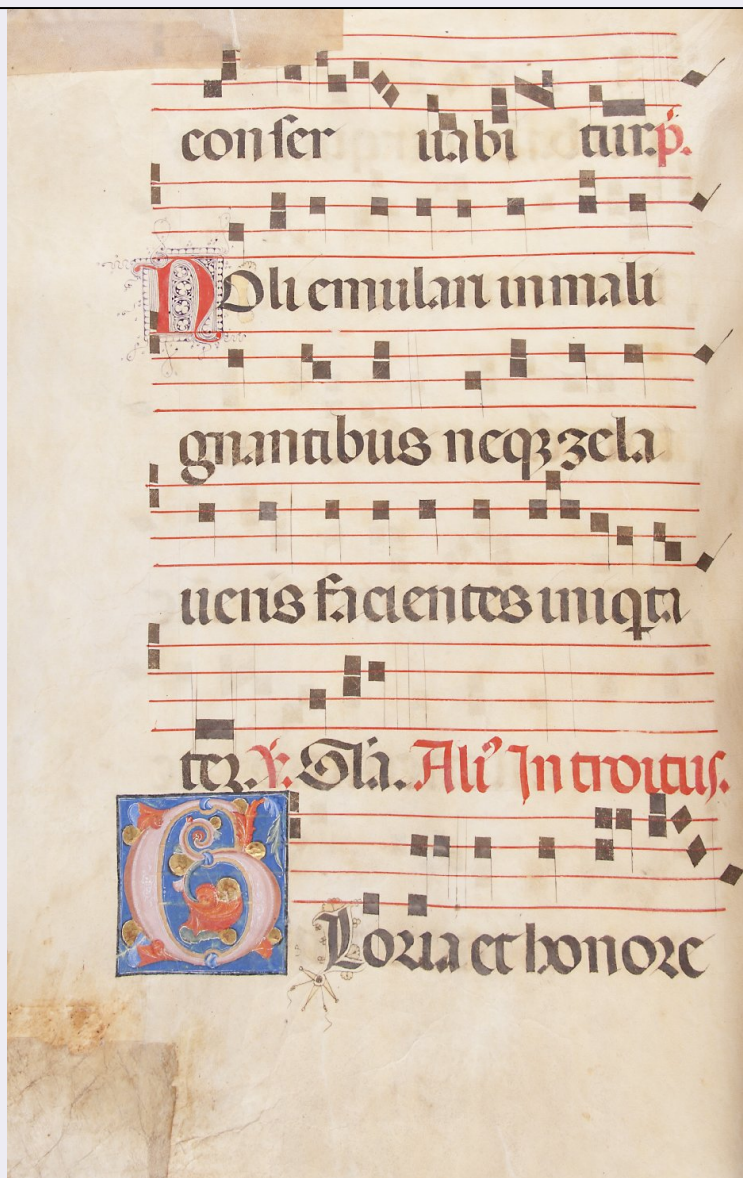 conser uabi tur. p̄.
Noli emulari in mali
gnantibus neqꝫ zela
ueris facientes iniqta
teꝫ. ℣. Gla. Ali' Introitus.
GLoria et honore